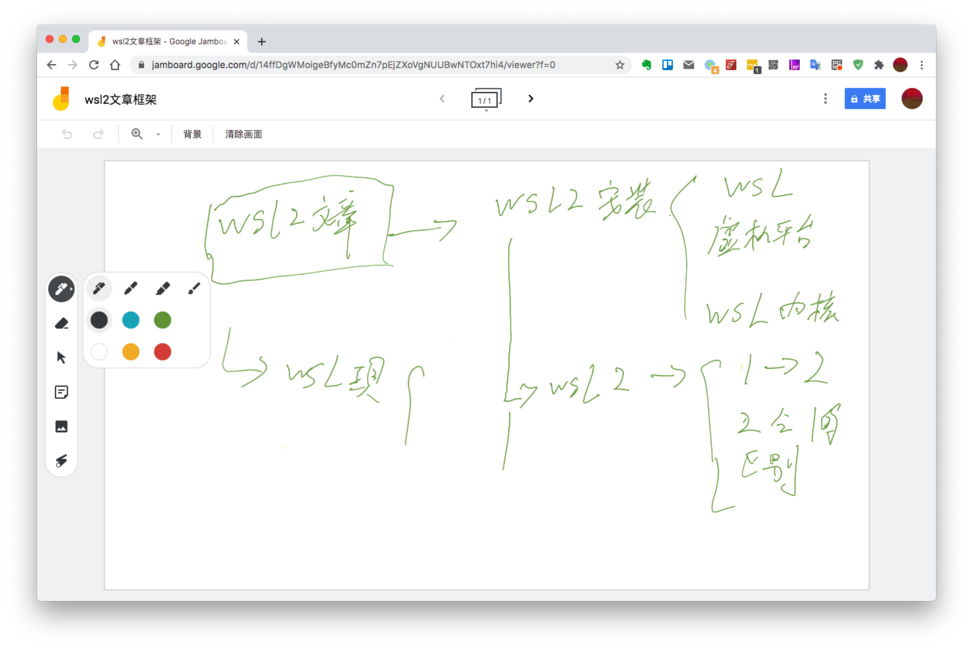 wsl2文章框架 - Google Jamboa
jamboard.google.com/d/14ffDgWMoigeBfyMc0mZn7pEjZXoVgNUUBwNTOxt7hi4/viewer?f=0
wsl2文章框架
1/1
共享
背景
清除画面
WSL2文章
WSL2安装
WSL
虚机平台
WSL内核
WSL现
WSL2
1→2
区别